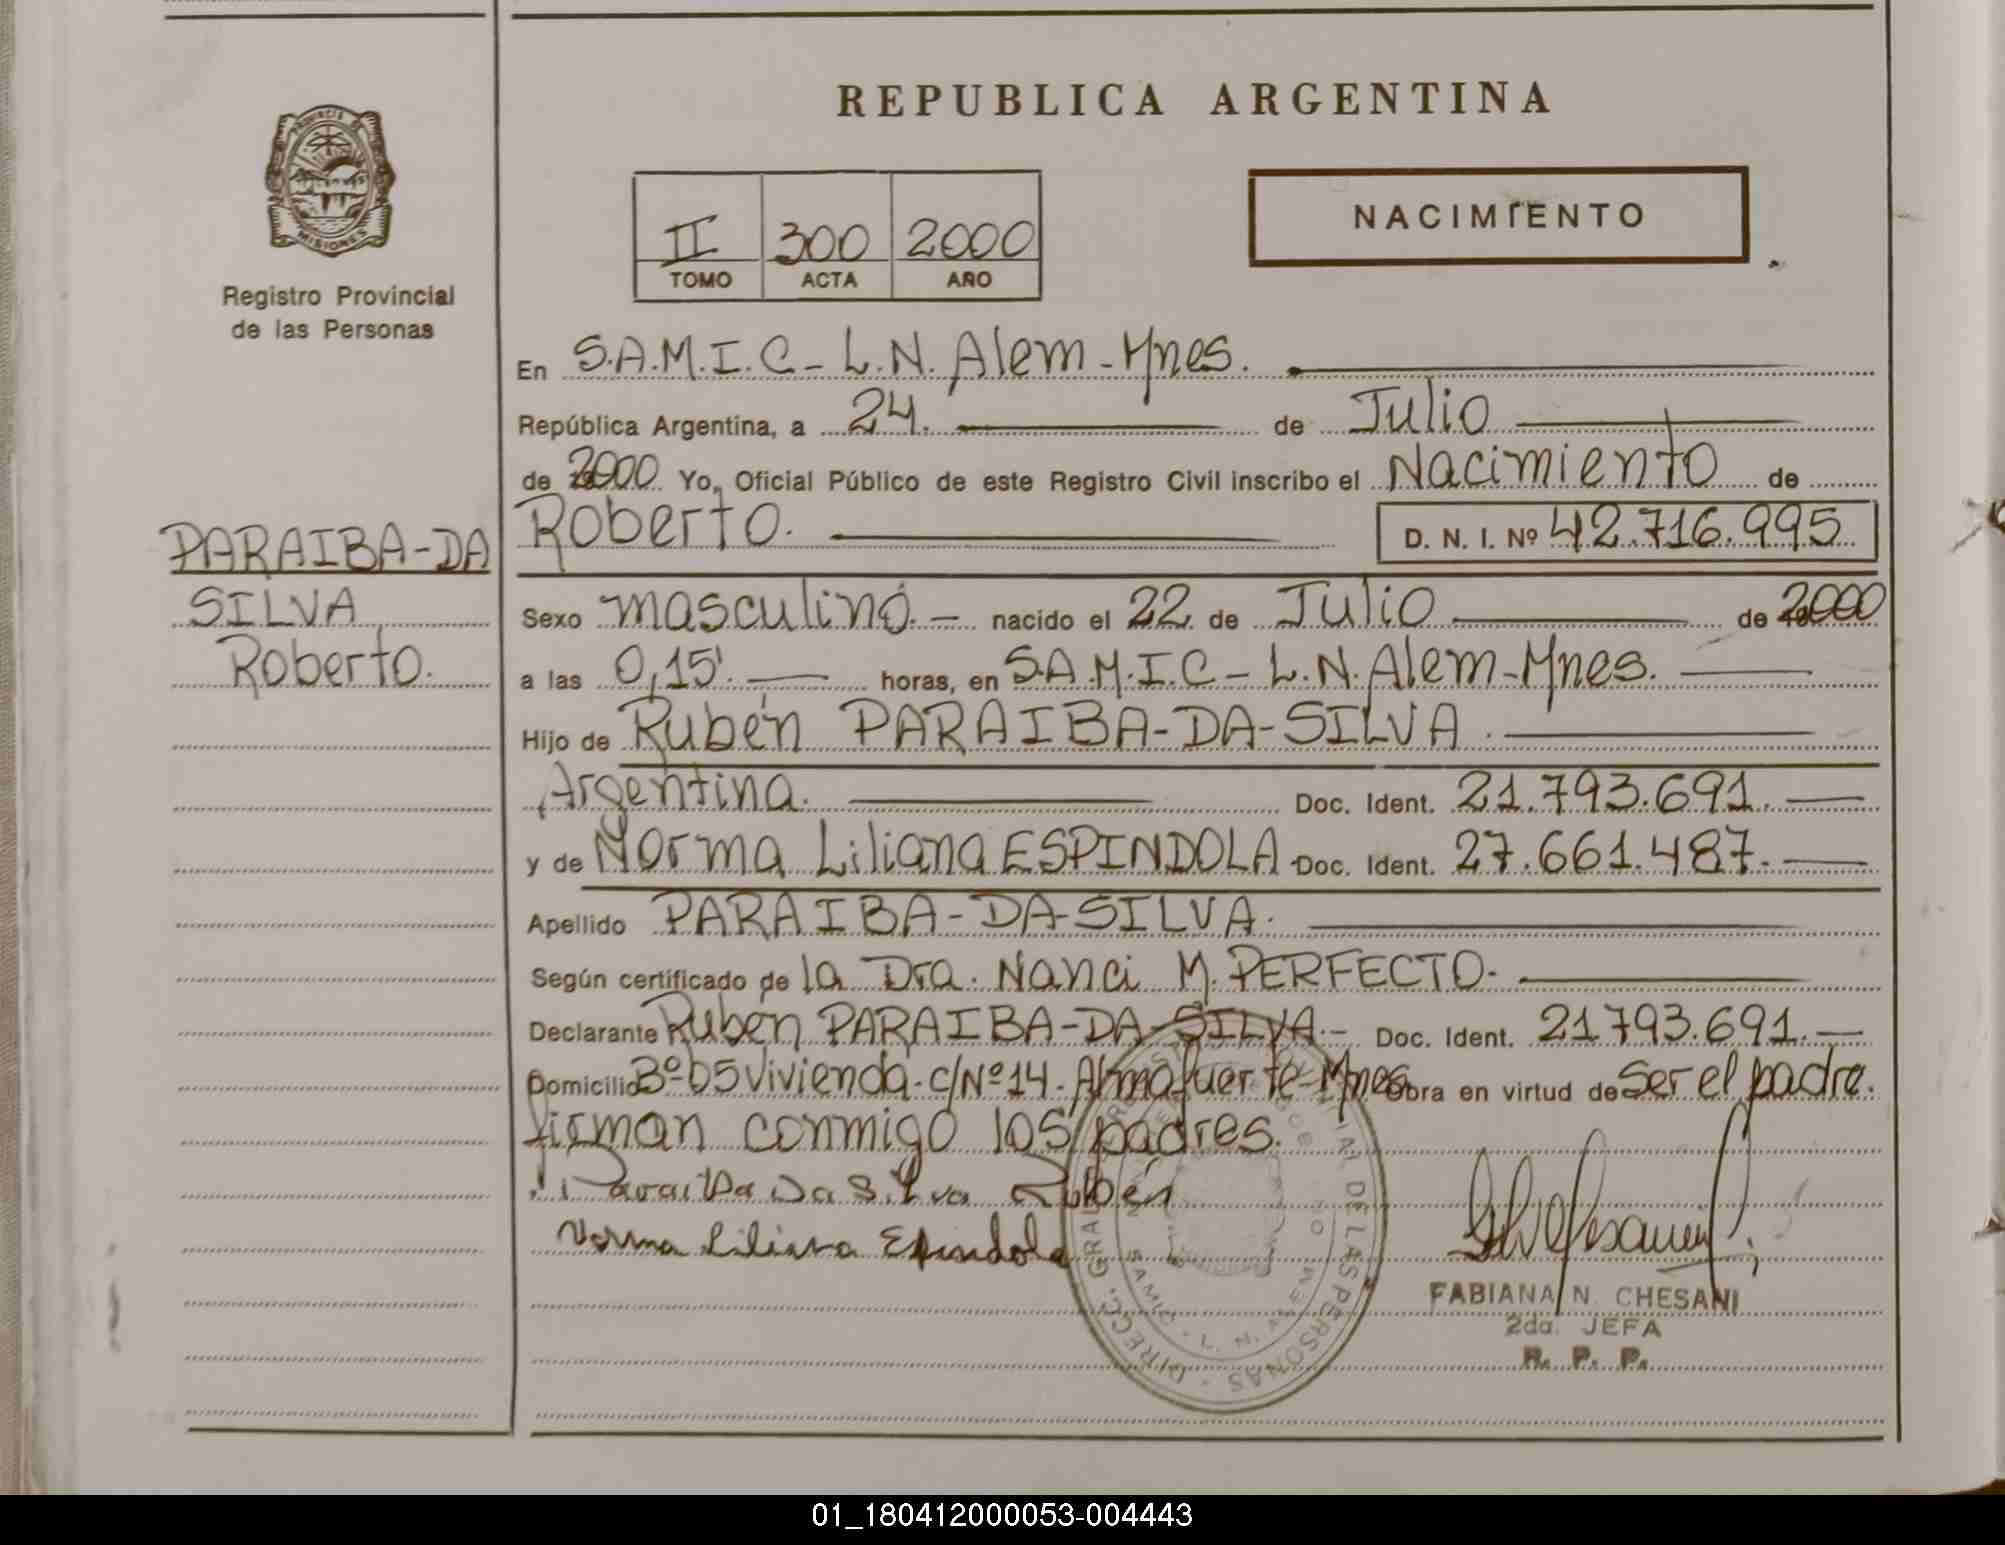 REPUBLICA ARGENTINA
PROVINCIA DE
MISIONES
Registro Provincial
de las Personas
II 300 2000
TOMO ACTA AÑO
NACIMIENTO
En S.A.M.I.C - L.N. Alem - Mnes.
República Argentina, a 24. de Julio
de 2000 Yo, Oficial Público de este Registro Civil inscribo el Nacimiento de
Roberto. D. N. I. Nº 42.716.995
PARAIBA-DA
SILVA
Roberto.
Sexo masculino. - nacido el 22 de Julio de 2000
a las 0,15'. horas, en S.A.M.I.C - L.N. Alem - Mnes.
Hijo de Rubén PARAIBA-DA-SILVA.
Argentina. Doc. Ident. 21.793.691.
y de Norma Liliana ESPINDOLA Doc. Ident. 27.661.487.
Apellido PARAIBA-DA-SILVA.
Según certificado de la Dra. Nanci M. PERFECTO.
Declarante Ruben PARAIBA-DA-SILVA.- Doc. Ident. 21793.691.
Domicilio Bº-65 vivienda-c/Nº14-Almafuerte-Mnes Obra en virtud de Ser el padre.
firman conmigo los padres.
Paraiba Da Silva Rubén
Norma Liliana Espindola
DIRECC. GRAL. DE LAS PERSONAS
SAMIC - L. N. ALEM
FABIANA N. CHESANI
2da. JEFA
R. P. P.
01_180412000053-004443